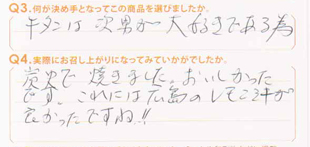 Q3.何が決め手となってこの商品を選びましたか。
牛タンは次男が大好きである為
Q4.実際にお召し上がりになってみていかがでしたか。
炭火で焼きました。おいしかった
です。これには広島のレモンが
良かったですね!!